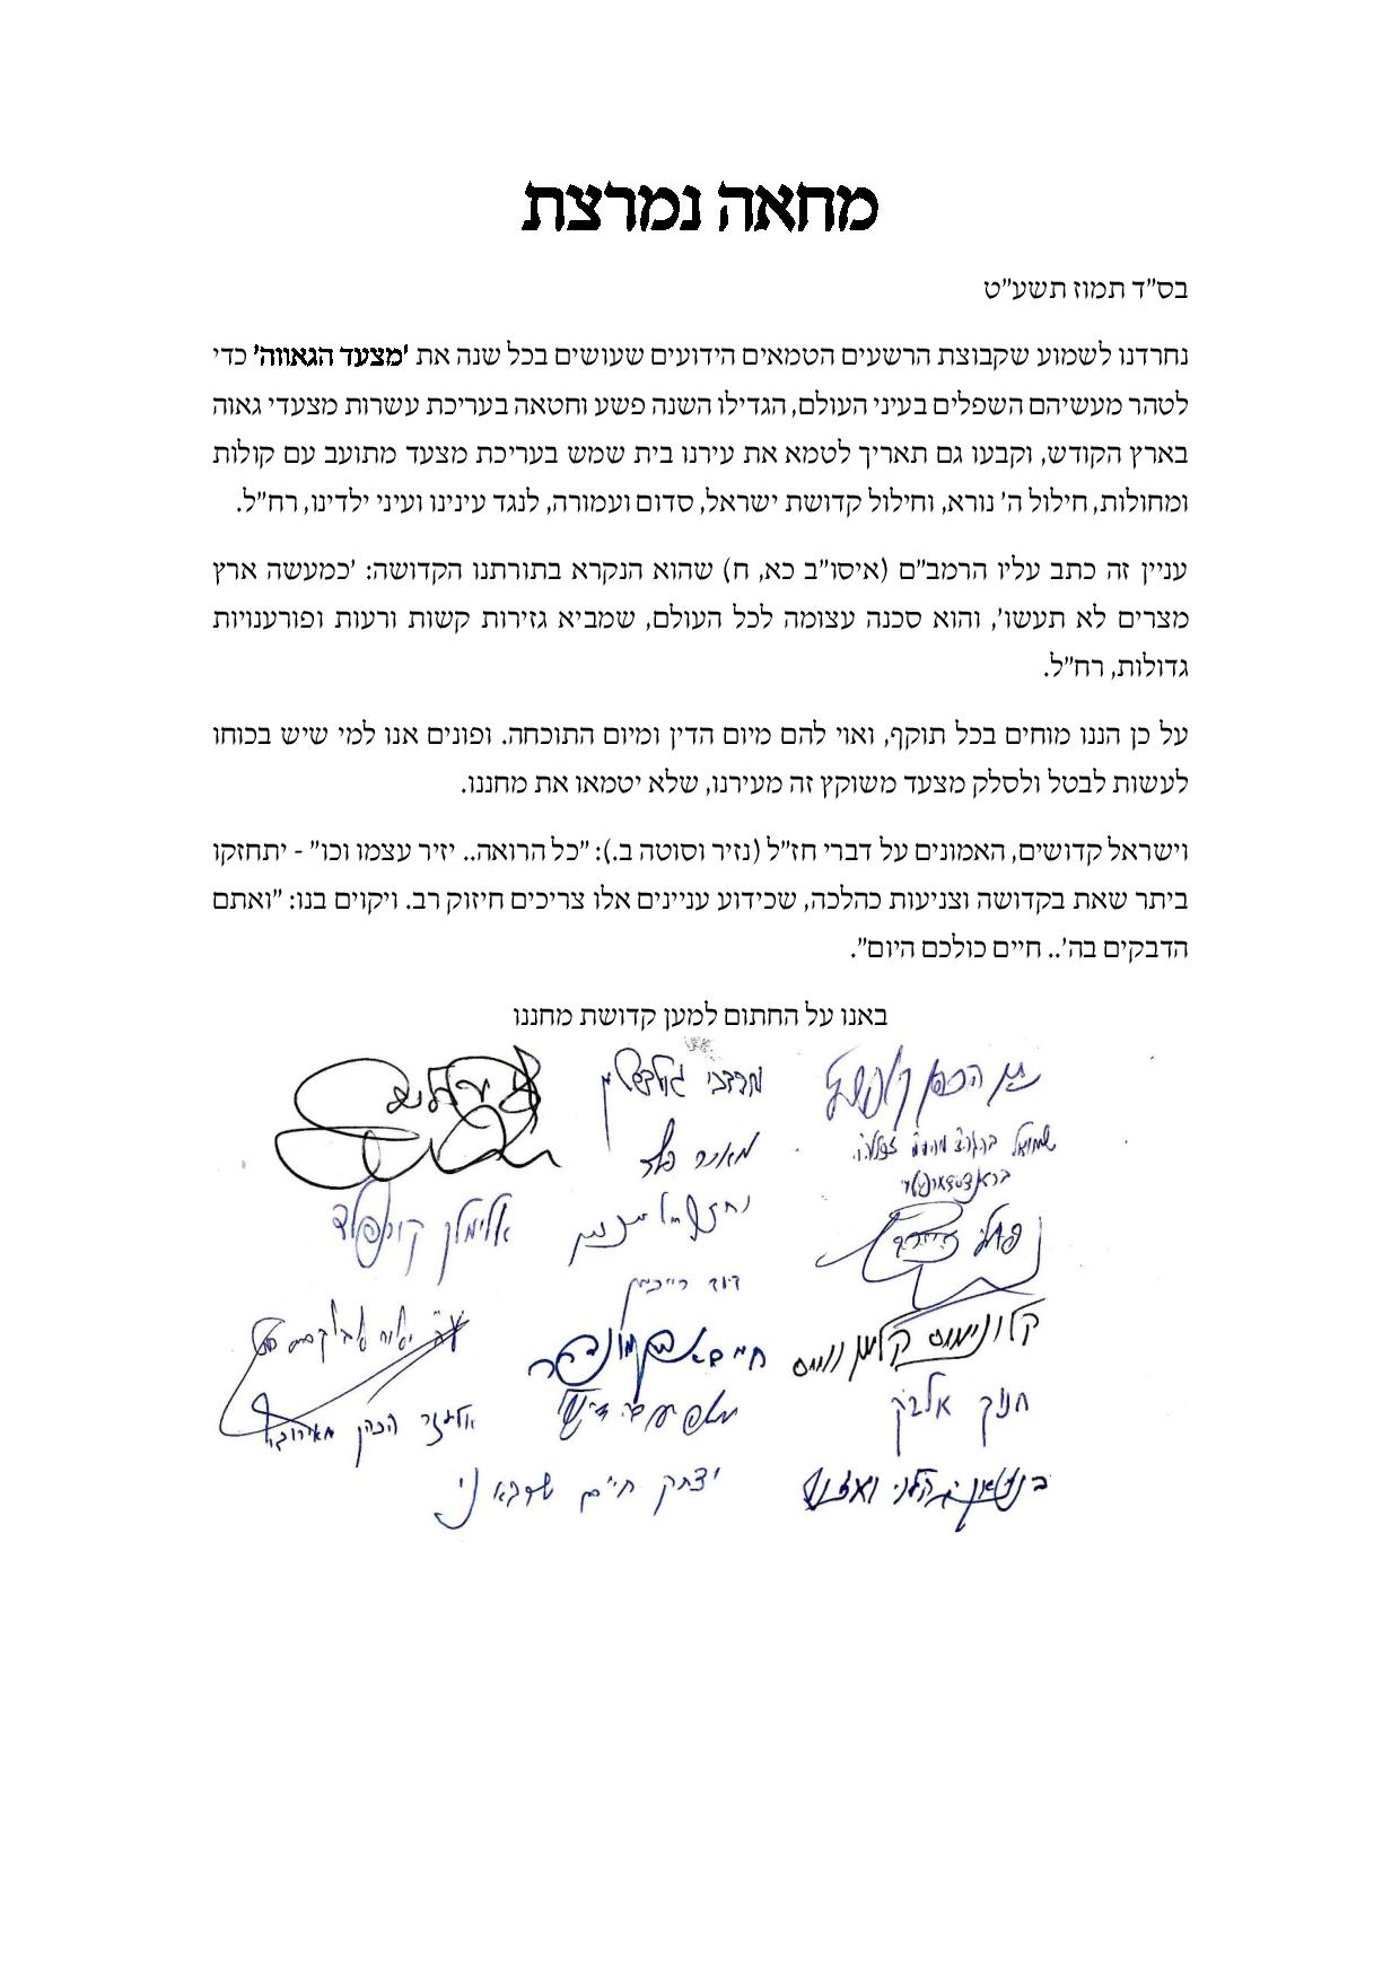 מחאה נמרצת
בס"ד תמוז תשע"ט
נחרדנו לשמוע שקבוצת הרשעים הטמאים הידועים שעושים בכל שנה את 'מצעד הגאווה' כדי
לטהר מעשיהם השפלים בעיני העולם, הגדילו השנה פשע וחטאה בעריכת עשרות מצעדי גאוה
בארץ הקודש, וקבעו גם תאריך לטמא את עירנו בית שמש בעריכת מצעד מתועב עם קולות
ומחולות, חילול ה' נורא, וחילול קדושת ישראל, סדום ועמורה, לנגד עינינו ועיני ילדינו, רח"ל.
עניין זה כתב עליו הרמב"ם (איסו"ב כא, ח) שהוא הנקרא בתורתנו הקדושה: 'כמעשה ארץ
מצרים לא תעשו', והוא סכנה עצומה לכל העולם, שמביא גזירות קשות ורעות ופורענויות
גדולות, רח"ל.
על כן הננו מוחים בכל תוקף, ואוי להם מיום הדין ומיום התוכחה. ופונים אנו למי שיש בכוחו
לעשות לבטל ולסלק מצעד משוקץ זה מעירנו, שלא יטמאו את מחננו.
וישראל קדושים, האמונים על דברי חז"ל (נזיר וסוטה ב.): "כל הרואה.. יזיר עצמו וכו" - יתחזקו
ביתר שאת בקדושה וצניעות כהלכה, שכידוע עניינים אלו צריכים חיזוק רב. ויקוים בנו: "ואתם
הדבקים בה'.. חיים כולכם היום".
באנו על החתום למען קדושת מחננו
נתן הכהן קופשיץ
מרדכי גולדשטיין
שמואל
אלימלך קורנפלד
דוד
קלונימוס קלמן ווייס
חנוך אלבק
אליעזר הכהן
יצחק חיים